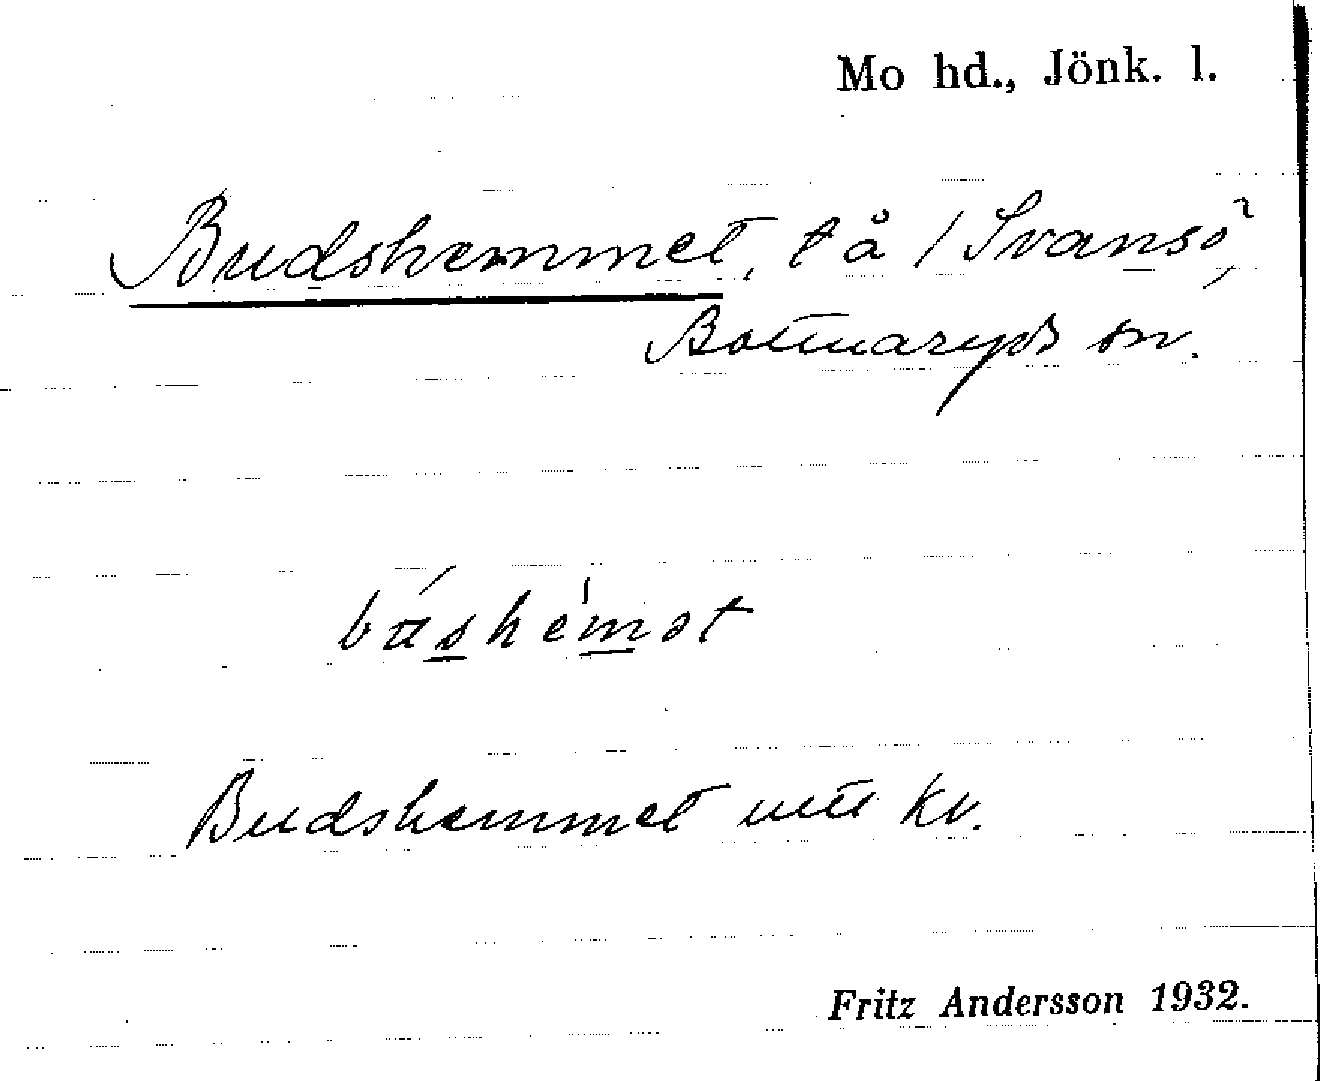 Mo hd., Jönk. l.
Budshemmet, tå / Svansö²,
Bottnaryds sn.
búshém̲ət
Budshemmet uttr kv.
Fritz Andersson 1932.